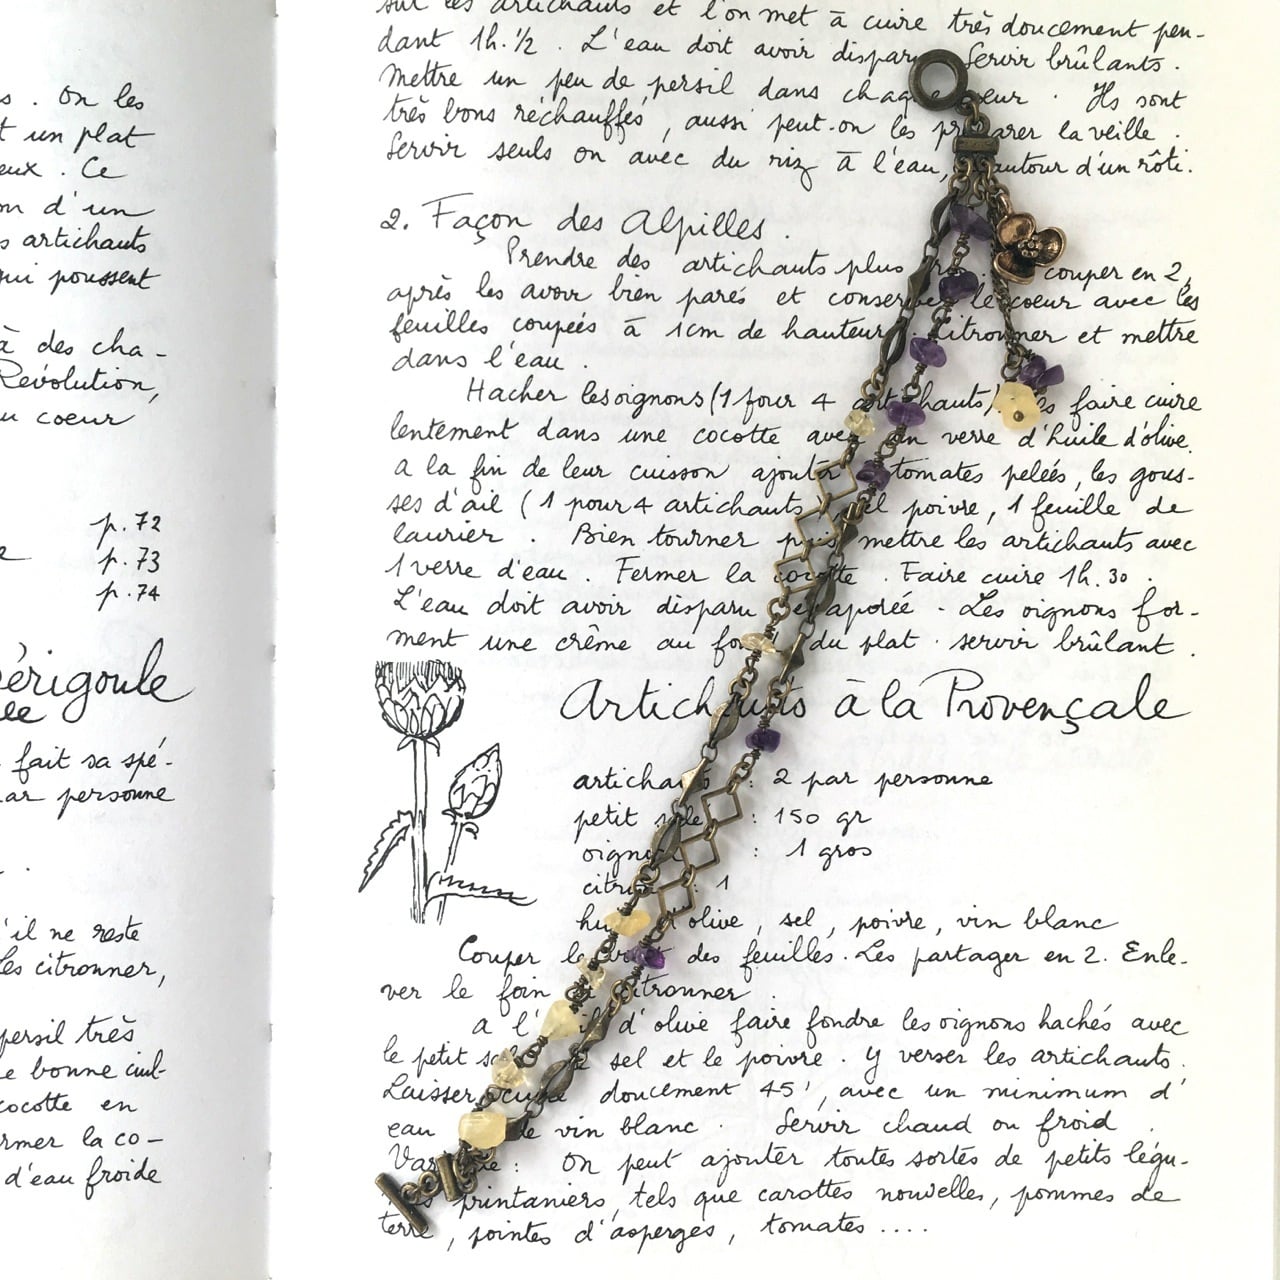 s. On les
t un plat
eux. Ce
on d'un
s artichauts
qui poussent
à des cha-
Révolution,
u coeur
p.72
e p.73
p.74
périgoule
lée
fait sa spé-
ar personne
'il ne reste
les citronner,
persil très
e bonne cuil-
cocotte en
rmer la co-
d'eau froide
sur les artichauts et l'on met à cuire très doucement pen-
dant 1h.½. L'eau doit avoir disparu Servir brûlants.
Mettre un peu de persil dans chaque coeur. Ils sont
très bons réchauffés, aussi peut-on les préparer la veille.
Servir seuls ou avec du riz à l'eau, autour d'un rôti.
2. Façon des Alpilles.
Prendre des artichauts plus couper en 2,
après les avoir bien parés et conserver le coeur avec les
feuilles coupées à 1cm de hauteur. Citronner et mettre
dans l'eau.
Hacher les oignons (1 pour 4 artichauts) les faire cuire
lentement dans une cocotte avec un verre d'huile d'olive.
A la fin de leur cuisson ajouter tomates pelées, les gous-
ses d'ail (1 pour 4 artichauts, sel poivre, 1 feuille de
laurier. Bien tourner puis mettre les artichauts avec
1 verre d'eau. Fermer la cocotte. Faire cuire 1h.30.
L'eau doit avoir disparu evaporée. Les oignons for-
ment une crême au fond du plat. servir brûlant.
Artichauts à la Provençale
artichauts : 2 par personne
petit salé : 150 gr
oignon : 1 gros
citron : 1
huile d'olive, sel, poivre, vin blanc
Couper le des feuilles. Les partager en 2. Enle-
ver le foin et citronner.
A l'huile d'olive faire fondre les oignons hachés avec
le petit salé le sel et le poivre. Y verser les artichauts.
Laisser cuire doucement 45', avec un minimum d'
eau de vin blanc. Servir chaud ou froid.
Variante : On peut ajouter toutes sortes de petits légu-
mes printaniers, tels que carottes nouvelles, pommes de
terre, pointes d'asperges, tomates ....